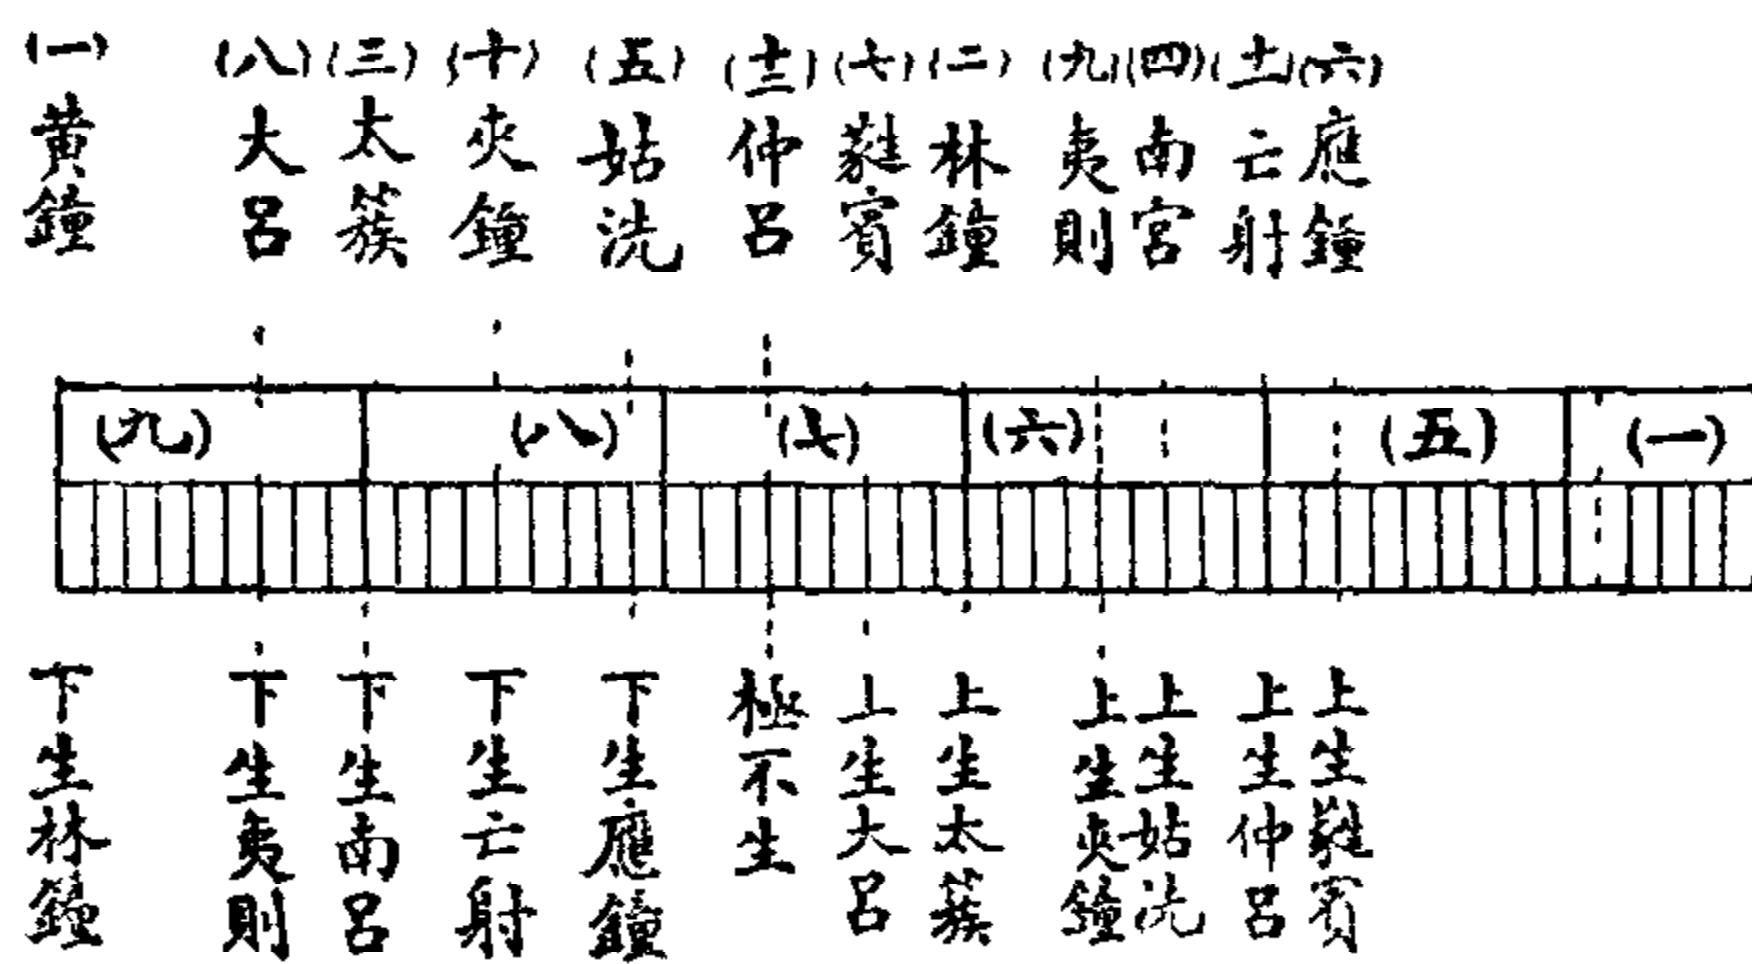 (一)黄鐘
(八)大呂
(三)太簇
(十)夾鐘
(五)姑洗
(十二)仲呂
(七)蕤賓
(二)林鐘
(九)夷則
(四)南宮
(十一)亡射
(六)應鐘
(九)
(八)
(七)
(六)
(五)
(一)
下生林鐘
下生夷則
下生南呂
下生亡射
下生應鐘
極不生
上生大呂
上生太蔟
上生夾鐘
上生姑洗
上生仲呂
上生蕤賓